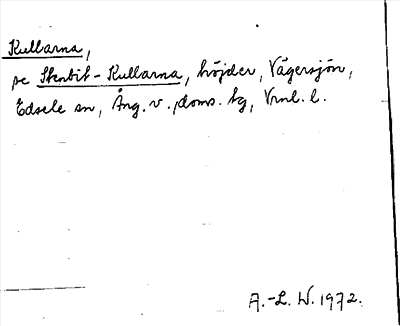 Kullarna,
se Stenbit-Kullarna, höjder, Vägersjön,
Edsele sn, Ång. v. doms. tg, Vrnl. l.
A.-L. W. 1972.